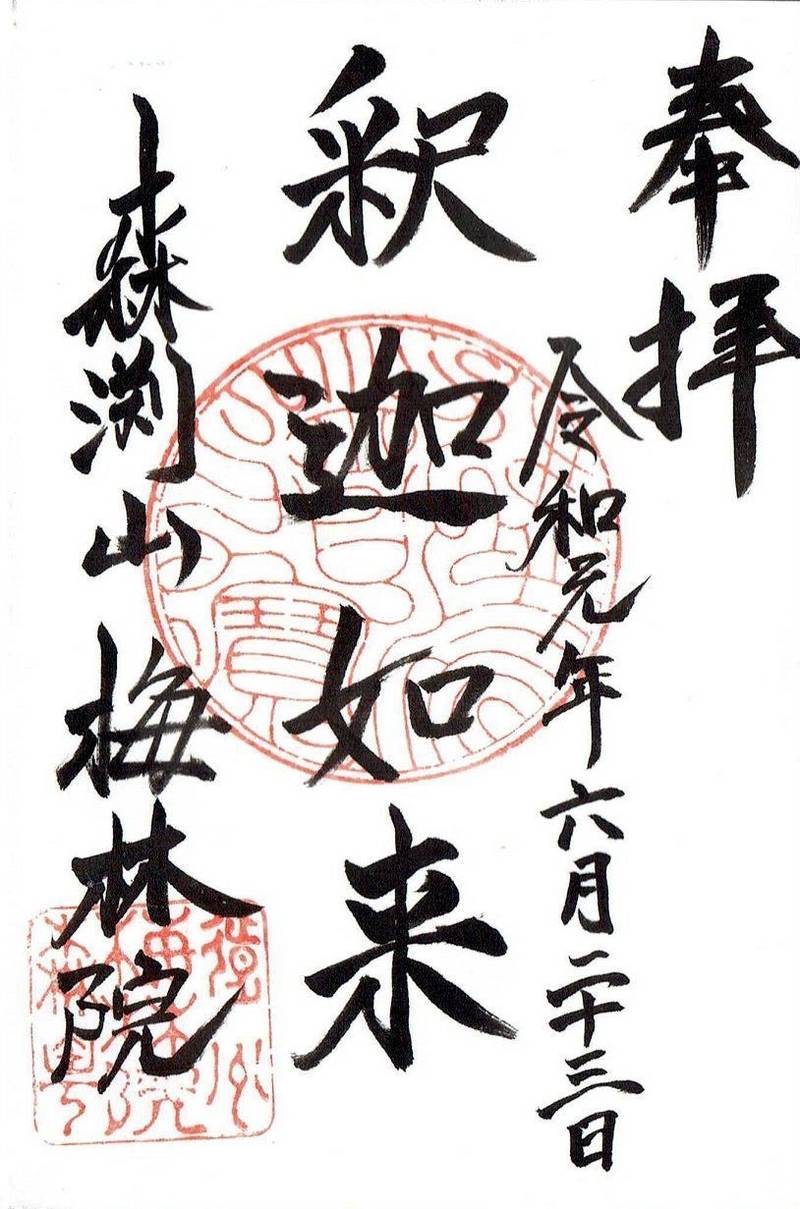 奉拝
令和元年六月二十三日
釈迦如来
森渕山梅林院